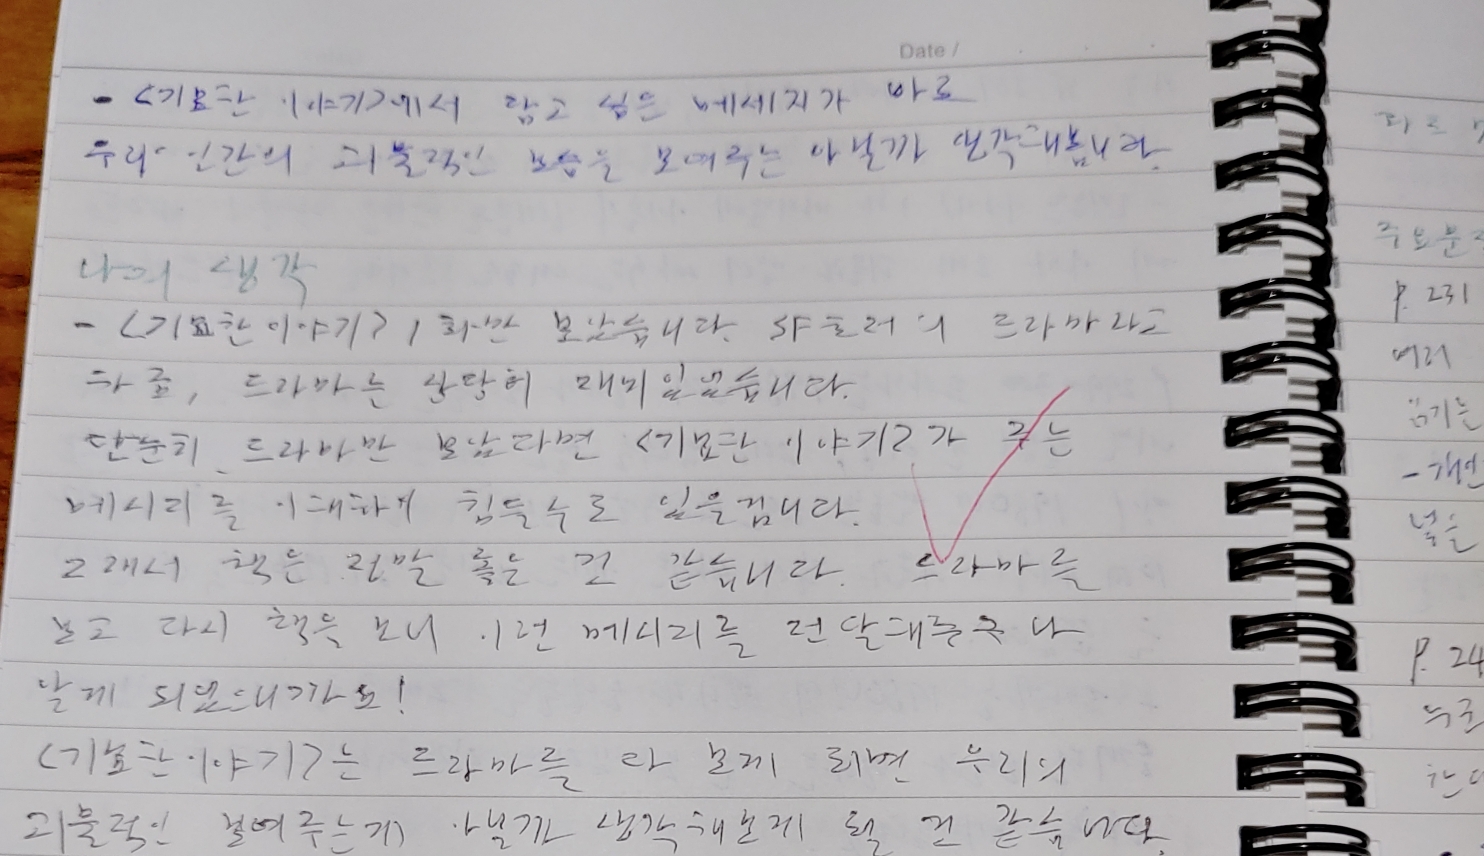 Date /
- <기묘한 이야기>에서 담고 싶은 메세지가 바로
우리 인간의 괴물적인 모습을 보여주는 아닐까 생각해봅니다.
나의 생각
- <기묘한 이야기> 1화만 보았습니다. SF호러의 드라마라고
하죠, 드라마는 상당히 재미있었습니다.
단순히 드라마만 보았다면 <기묘한 이야기>가 주는
메시지를 이해하기 힘들수도 있을겁니다.
그래서 책은 정말 좋은 것 같습니다. 드라마를
보고 다시 책을 보니 이런 메시지를 전달해주구나
알게 되었으니까요!
<기묘한 이야기>는 드라마를 다 보게 되면 우리의
괴물적인 보여주는게 아닐까 생각해보게 될 것 같습니다.
주요문
p. 231
여러
- 개인
p. 24
누군